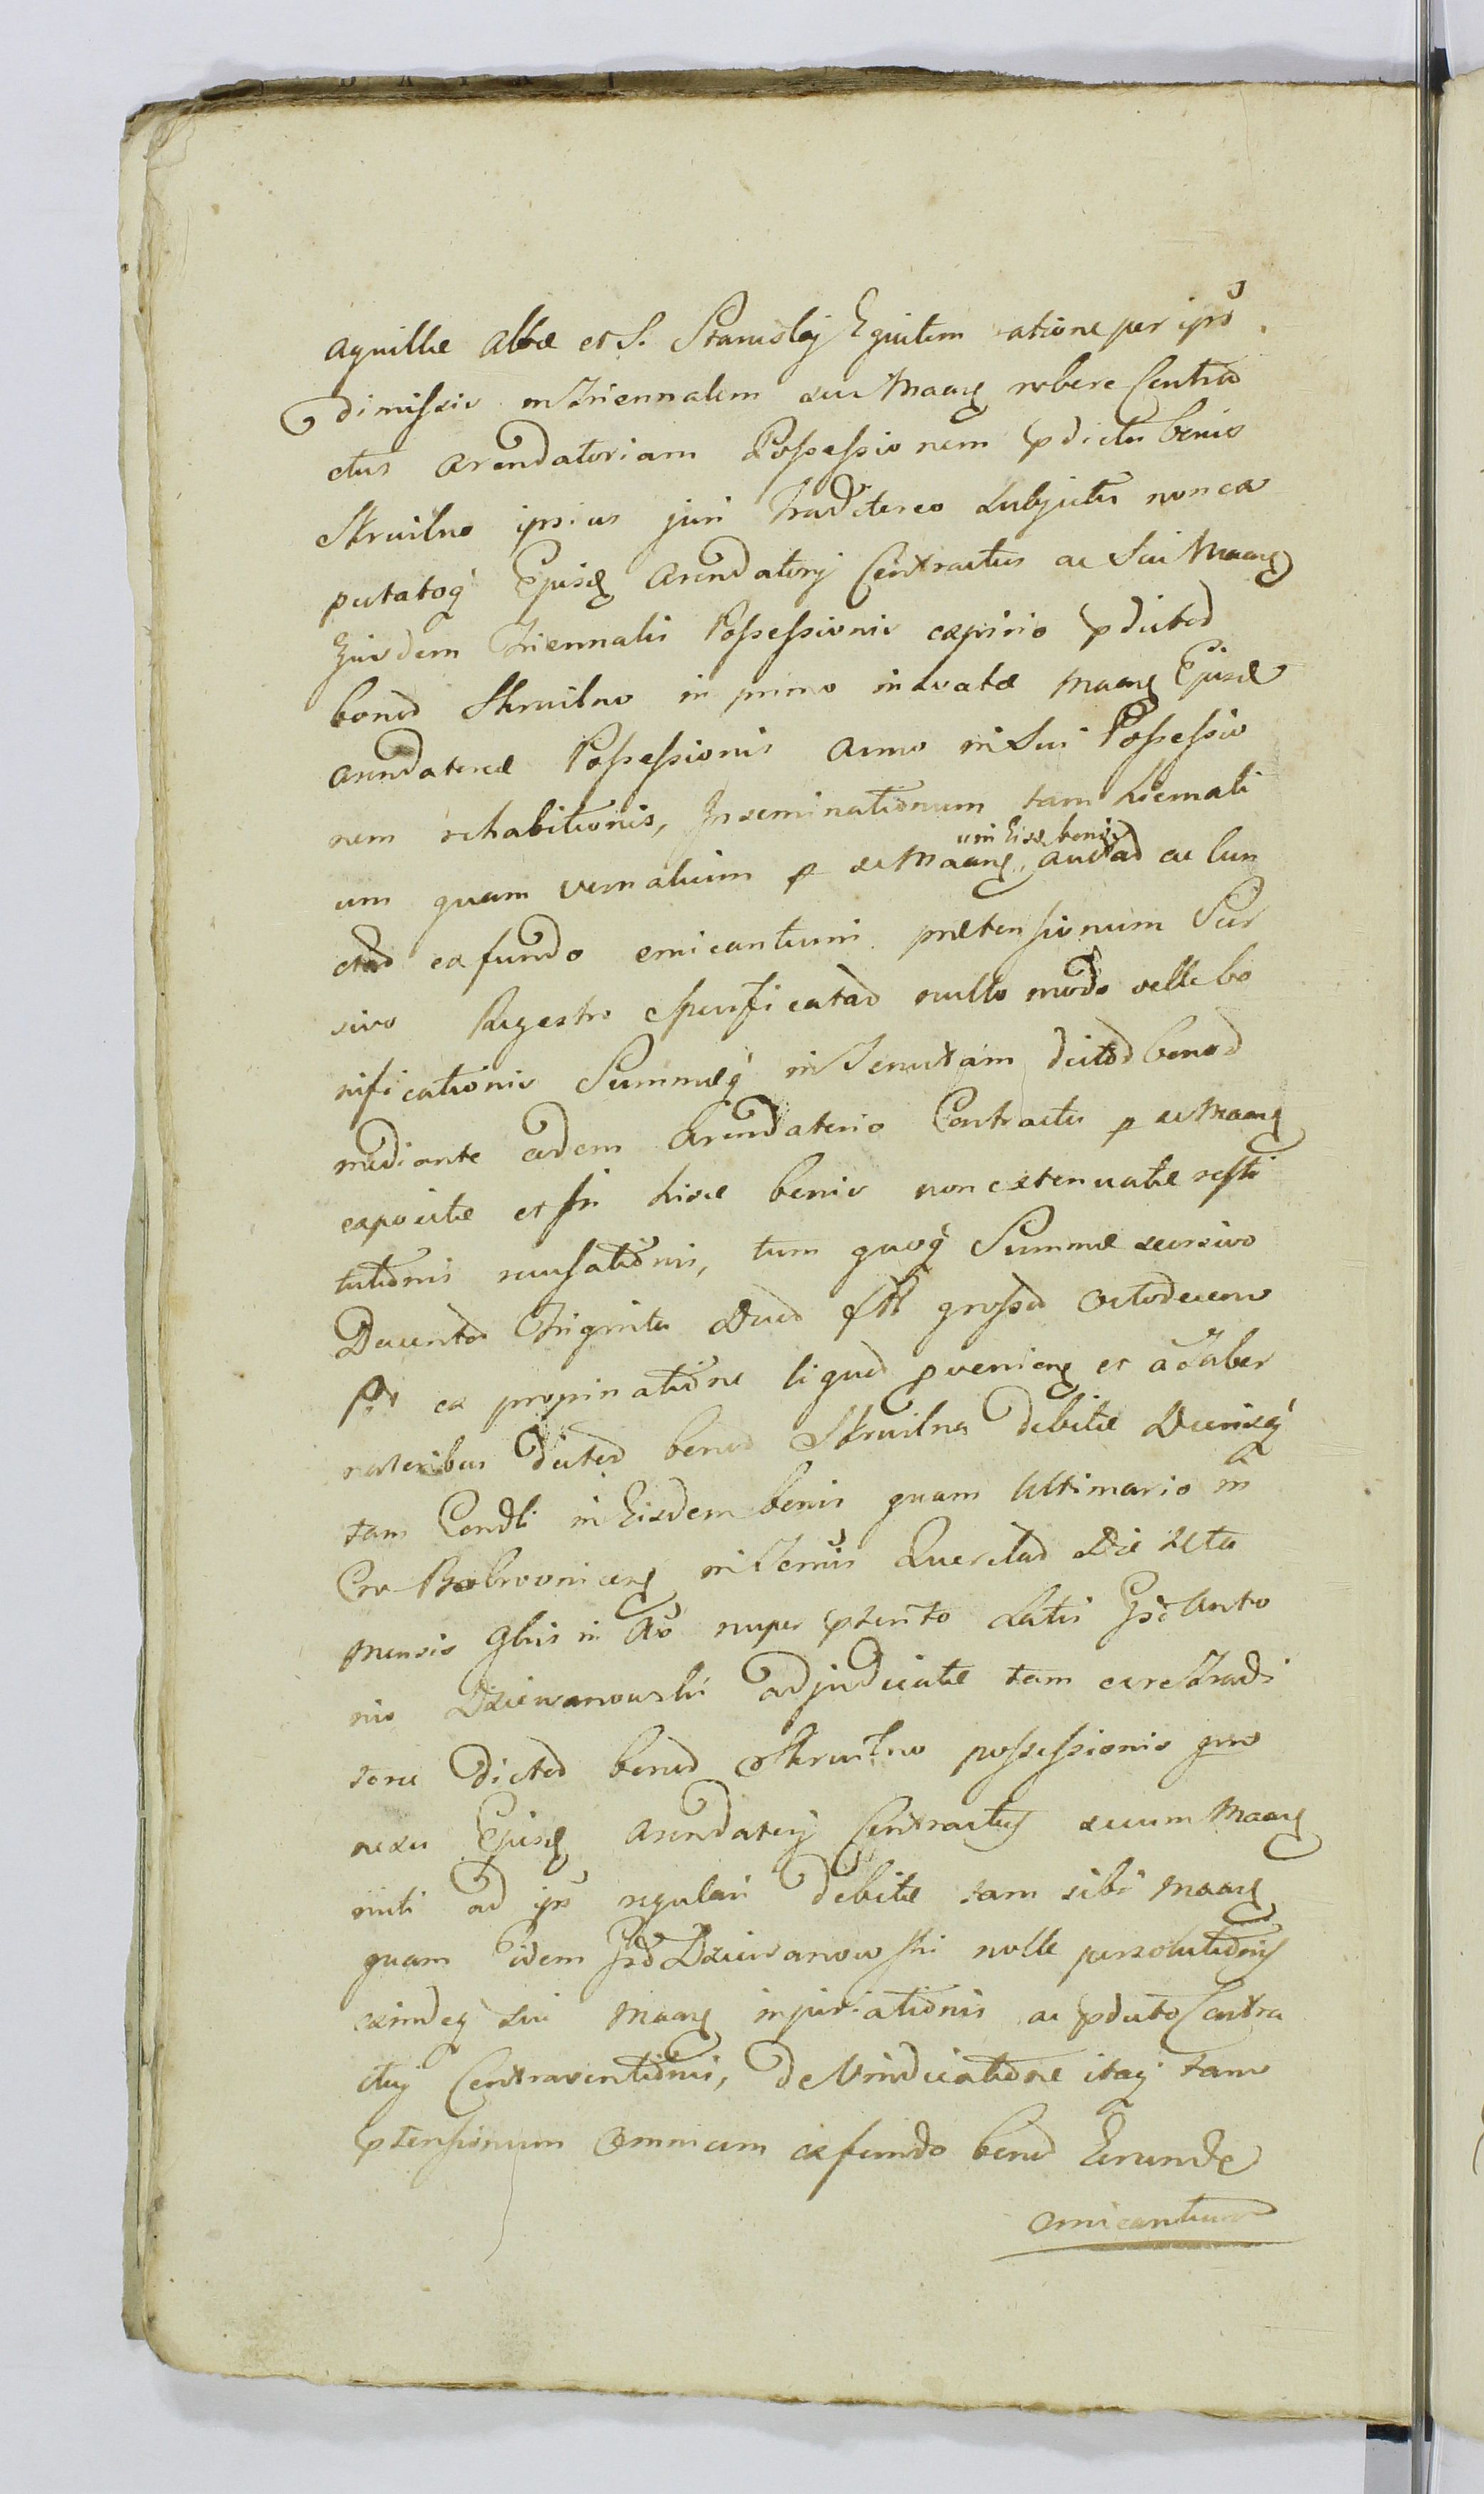 Aquillæ Albæ et S. Stanislaj Equitem ratione per ipś
dimissis in Triennalem seu Maang robere Contra
ctus arendatoriam Possessionem pdictis bonis
Skruilno ipsius juri Traditereo subjectis non ex
putatoq́ Ejusd Arendatorij Contractus ac Sui Maang
Ejusdem Triennalis Possessionis expirio pdictod
bonod Skruilno in primo inchoatæ Maang Ejusd
arendatoriæ Possessionis Anno in Sui Possessio
nem rehabitionis, Inseminationum tam hiemali
um quam vernalium p se Maang in Eisd bonis auctad ac cun
ctad ex fundo emicantium prætensionum Sur
sivo Regestro specificatad nullo modo velle bo
nificationis Summæq́ in Tenutam dictod bonod
mediante eodem Arendatorio Contractu p se Maang
expositæ et in hisce bonis non extenuatæ resti
tutionis recusationis, tum quoq́ Summæ seorsivo
Ducentod Triginta Duod fll grossod Octodecem
Pr ex propinatione liquod proveniens et a Taber
natoribus dictod bonod Skruilno debitæ Decimæq́
tam Condli in Eisdem bonis quam Ultimario in
Cro Bobrovnicens in Termis Querelad Die 21ta
Mensis 9bris in Ao nuper pterito Latis Gso Anto
nio Dziewanowski adjudicatæ tam ex re Tradi
toriæ dictod bonod Skruilno possessionis quo
nexu Ejusd Arendatorij Contractus secum Maang
initi ad ips regulari debitæ tam sibi Maang
quam eidem Gsd Dziewanowski nolle persolutionis
eximdeq́ sui Maang injuriationis ac pdicto Contra
ctuj Contraventionis, de Vindicatione itaq́ tam
ptensionum Omnium ex fundo bonod Eorunde
emicantium